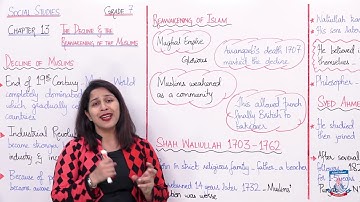 Social Studies
Grade 7
Chapter 13
The Decline & the
Reawakening of the Muslims
Decline of Muslims
End of 19th Century
World
completely domina
which gradually co
countries
Industrial Revolu
became stronger
industry &
Because of
became aware
Reawakening of Islam
Mughal Empire
Glorious
Aurangzeb's death 1707
marked the decline
Muslims weakened
as a community
this allowed French
finally British to
takeover
Shah Waliullah 1703-1762
in strict religious family - a teacher
14 years later 1732 - Muslims'
tion was worse
Waliullah
His son
He believed
themselves -
Philosopher
Syed Ahme
He studied
then joined
After several
Punjab